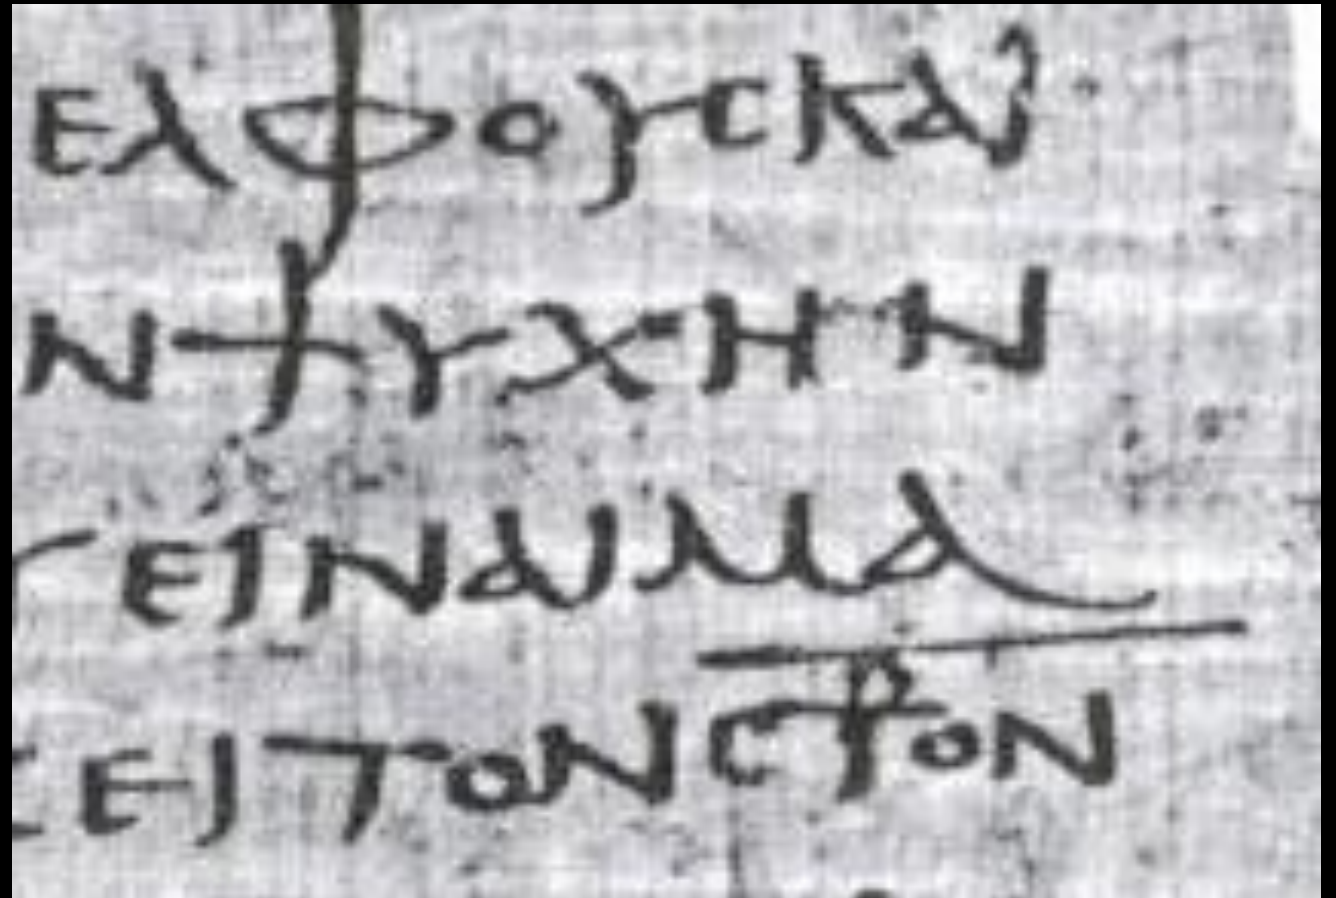 ΕΛΦΟΥϹΚΑΙ
ΝΨΥΧΗΝ
ΥΕΙΝΑΙΜΑ
ΖΕΙΤΟΝϹ⳨ΟΝ